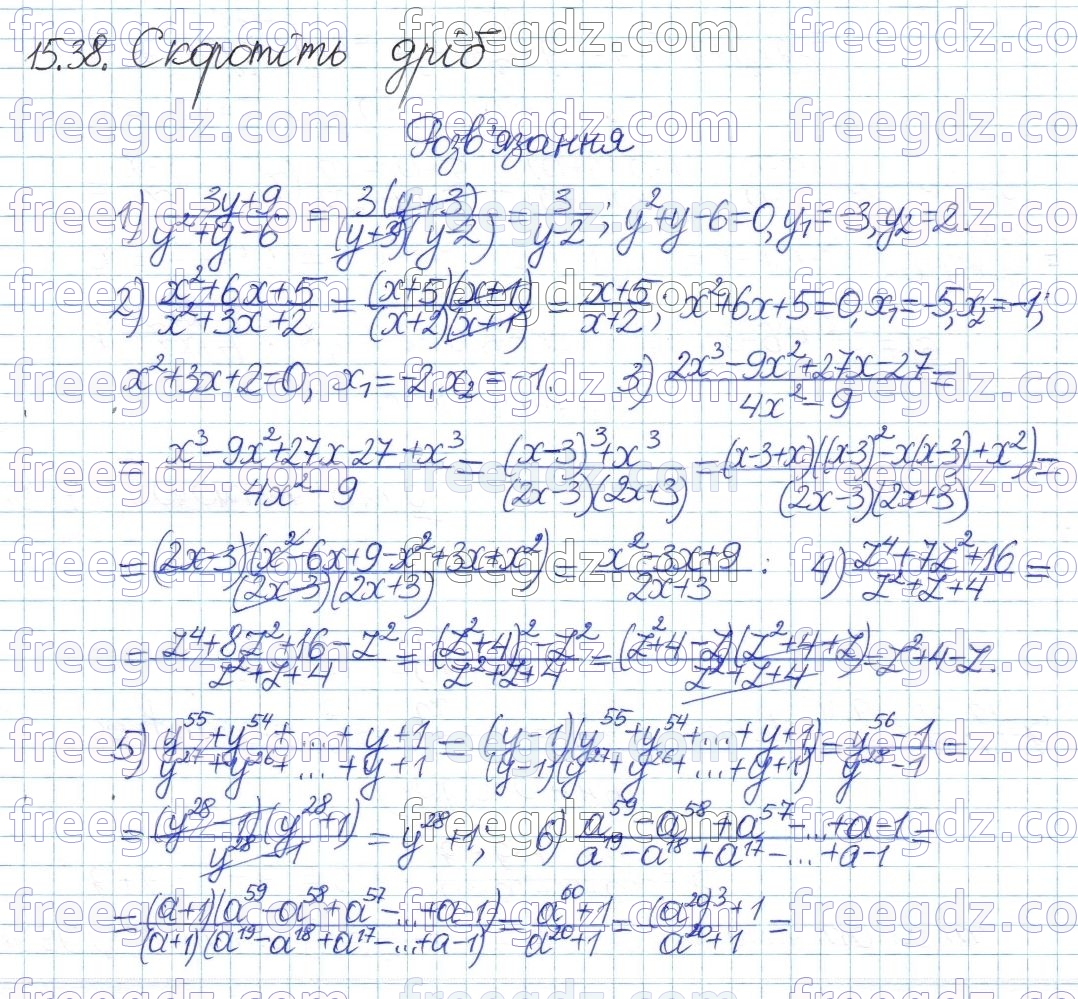 15.38. Скоротіть дріб
Розв'язання
1) (3y+9)/(y²+y-6) = (3(y+3))/((y+3)(y-2)) = 3/(y-2); y²+y-6=0, y₁=-3, y₂=2.
2) (x²+6x+5)/(x²+3x+2) = ((x+5)(x+1))/((x+2)(x+1)) = (x+5)/(x+2); x²+6x+5=0, x₁=-5, x₂=-1;
x²+3x+2=0, x₁=-2, x₂=-1. 3) (2x³-9x²+27x-27)/(4x²-9) =
= (x³-9x²+27x-27+x³)/(4x²-9) = ((x-3)³+x³)/((2x-3)(2x+3)) = ((x-3+x)((x-3)²-x(x-3)+x²))/((2x-3)(2x+3)) =
= ((2x-3)(x²-6x+9-x²+3x+x²))/((2x-3)(2x+3)) = (x²-3x+9)/(2x+3) : 4) (z⁴+7z²+16)/(z²+z+4) =
= (z⁴+8z²+16-z²)/(z²+z+4) = ((z²+4)²-z²)/(z²+z+4) = ((z²+4-z)(z²+4+z))/(z²+z+4) = z²+4-z.
5) (y⁵⁵+y⁵⁴+...+y+1)/(y²⁷+y²⁶+...+y+1) = ((y-1)(y⁵⁵+y⁵⁴+...+y+1))/((y-1)(y²⁷+y²⁶+...+y+1)) = (y⁵⁶-1)/(y²⁸-1) =
= ((y²⁸-1)(y²⁸+1))/(y²⁸-1) = y²⁸+1; 6) (a⁵⁹-a⁵⁸+a⁵⁷-...+a-1)/(a¹⁹-a¹⁸+a¹⁷-...+a-1) =
= ((a+1)(a⁵⁹-a⁵⁸+a⁵⁷-...+a-1))/((a+1)(a¹⁹-a¹⁸+a¹⁷-...+a-1)) = (a⁶⁰+1)/(a²⁰+1) = ((a²⁰)³+1)/(a²⁰+1) =
freegdz.com